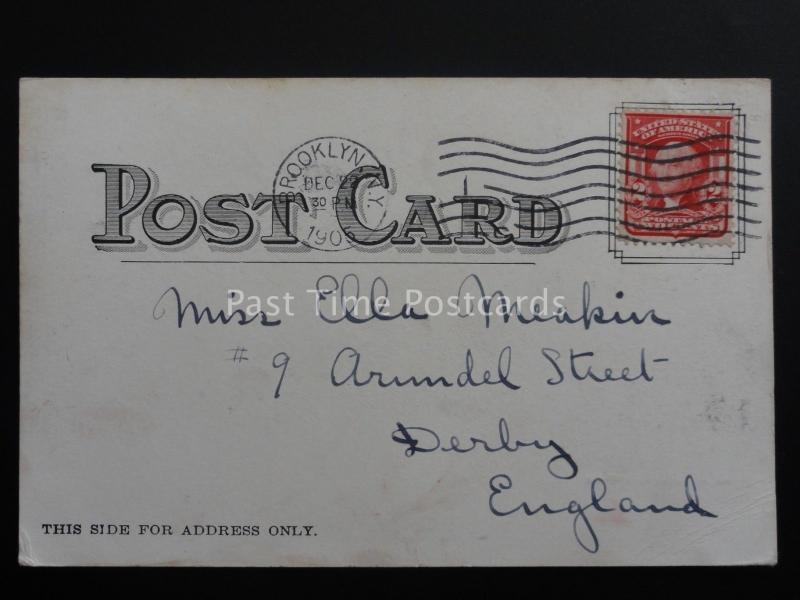 POST CARD
BROOKLYN, N.Y.
DEC
30 PM
190
UNITED STATES
OF AMERICA
2 2
POSTAGE
TWO CENTS
Past Time Postcards
Miss Ella Meakin
# 9 Arundel Street
Derby
England
THIS SIDE FOR ADDRESS ONLY.